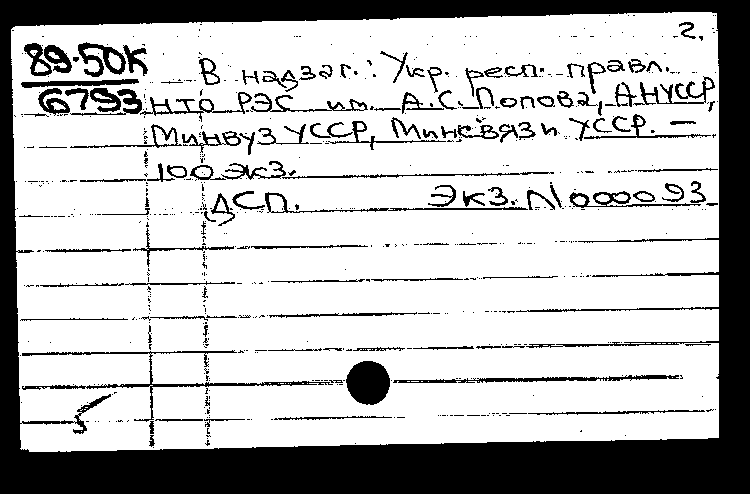 2.
89-50К
6793
В надзаг.: Укр. респ. правл.
НТО РЭС им. А.С. Попова, АН УССР,
Минвуз УССР, Минсвязи УССР. —
100 экз.
ДСП. Экз. N 000093